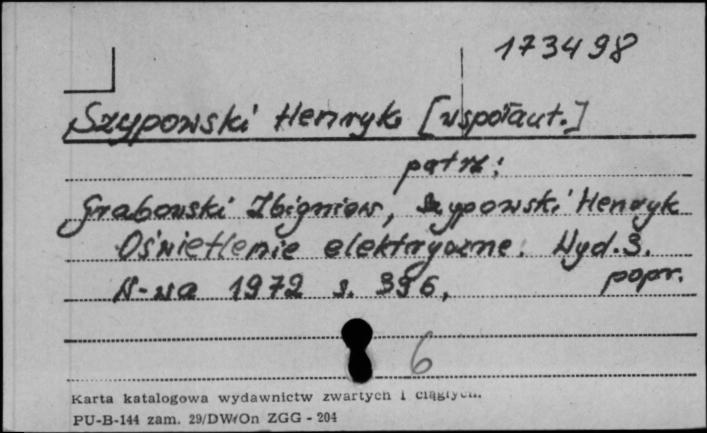 173498
Szypowski Henryk [współaut.]
patrz:
Grabowski Zbigniew, Szypowski Henryk
Oświetlenie elektryczne. Wyd. 3.
popr.
W-wa 1972 s. 396,
6
Karta katalogowa wydawnictw zwartych i ciągłych.
PU-B-144 zam. 29/DW/On ZGG - 204